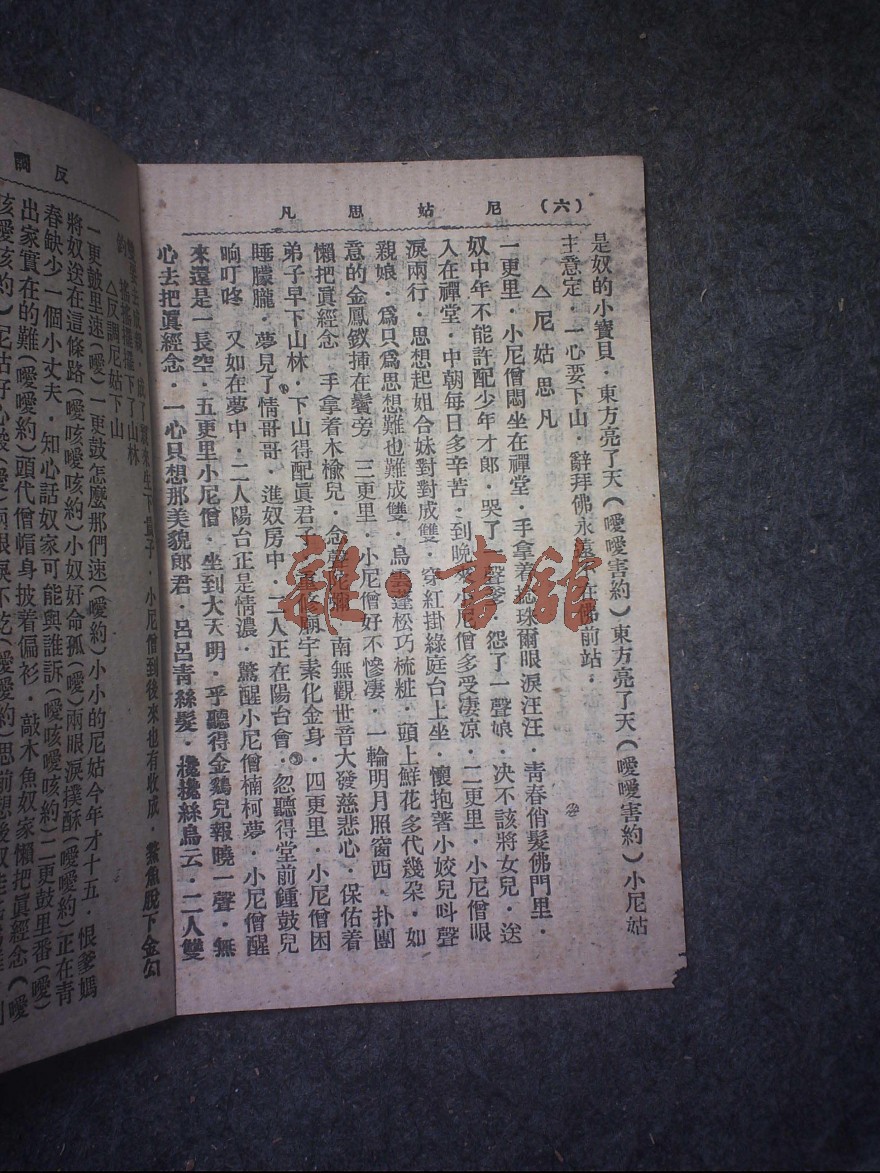 （六）　尼姑思凡
是奴的小寶貝．東方亮了天（噯噯害約）東方亮了天（噯噯害約）小尼姑
主意定．一心要下山．辭拜佛永在佛前站；
△尼姑思凡
一更里．小尼僧悶坐在禪堂．手拿着珠爾眼淚汪汪．青春俏髮佛門里．
奴中年不能許配少年才郎．哭了聲爹．怨了一聲娘．决不該將女兒．送
入在禪堂．中朝每日多辛苦．到晚來小尼僧多受凄凉．二更里．小尼僧眼
淚兩行．思想起姐合妹對對成雙．穿紅掛綠庭台上坐．懷抱著小姣兒呌聲
親娘．爲只爲思想難也難成雙．烏雲蓬松巧梳粧．頭上鮮花多代幾朶．如
意的金鳳釵揷在鬢旁　三更里．小尼僧好不慘凄．一輪明月照窗西．扑團
懶把眞經念　手拿着木楡兒．念彌　南無觀世音大發慈悲心．保佑着
弟子早下山林．下山得配眞君子．廟宇素化金身．四更里．小尼僧困
睡朦朧．夢見了情哥哥．進奴房中．二人正在陽台會．忽聽得堂前鍾鼓兒
响叮咚　又如在夢中．二人陽台正是情濃．驚醒小尼僧楠柯夢．小尼僧醒
來還是一長空．五更里小尼僧．坐到大天明．乎聽得金鷄兒報曉一聲．無
心去把眞經念．一心只想那美貌郎君．呂呂靑絲髮．攙攙絲烏云．二人雙
反調
成了親來生下貴子．小尼僧到後來也有收成．鰲魚脫下金勾
搖搖擺擺下了山林
△反調尼姑下山
一更鼓里速（噯）一更鼓怎麼那們速（噯約）小小的尼姑今年才十五．恨爹媽
將奴送在這條路（噯咳噯咳約）小奴好命孤（噯）兩眼淚撲酥（噯噯約）正在青
春缺少一個小丈夫．知心話奴家可能與誰訴（噯咳噯咳約）二更鼓里番（噯）
出家實在的難（噯噯約）頭代僧帽身披着偏衫．敲木魚奴家懶把眞經念（噯
咳噯咳約）尼姑好心酸（噯）兩眼淚不乾（噯噯約）思前想後
雜·書館